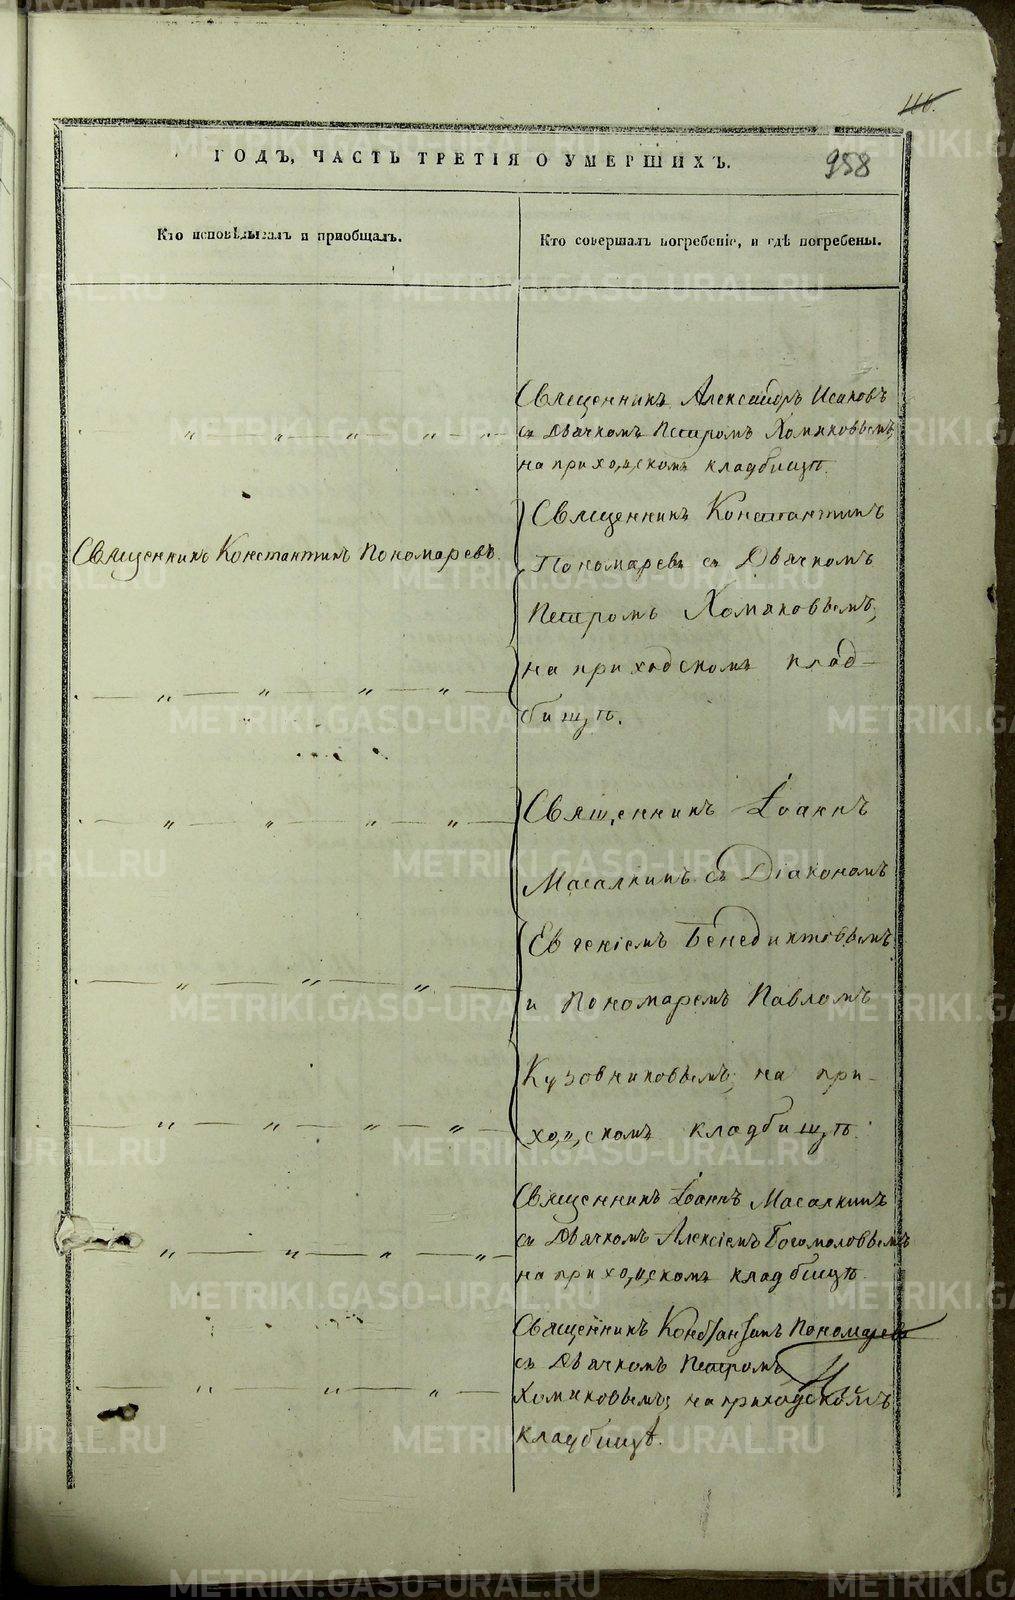 116.
ГОДЪ, ЧАСТЬ ТРЕТІЯ О УМЕРШИХЪ.
958
Кто исповѣдывалъ и приобщалъ.
Кто совершалъ погребеніе, и гдѣ погребены.
Священникъ Александръ Исаковъ
съ Дьячкомъ Петромъ Хомяковымъ,
на приходскомъ кладбищѣ.
Священникъ Константинъ Пономаревъ.
Священникъ Константинъ
Пономаревъ съ Дьячкомъ
Петромъ Хомяковымъ,
на приходскомъ клад-
бищѣ.
Священникъ Іоаннъ
Масалкинъ съ Діакономъ
Евгеніемъ Бенедиктовымъ
и Пономаремъ Павломъ
Кузовниковымъ, на при-
ходскомъ кладбищѣ.
Священникъ Іоаннъ Масалкинъ
съ Дьячкомъ Алексіемъ Богомоловымъ
на приходскомъ кладбищѣ.
Священникъ Константинъ Пономаревъ
съ Дьячкомъ Петромъ
Хомяковымъ, на приходскомъ
кладбищѣ.
METRIKI.GASO-URAL.RU